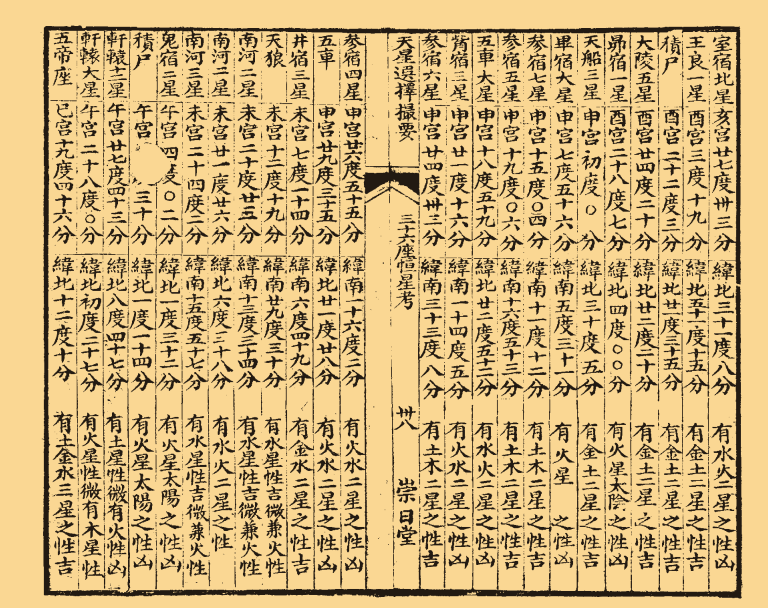 室宿北星 亥宮廿七度卅三分 緯北三十一度八分 有水火二星之性凶
王良一星 酉宮三度十九分 緯北五十一度十五分 有金土二星之性吉
積尸 酉宮二十二度三分 緯北廿一度三十五分 有金土二星之性凶
大陵五星 酉宮廿四度二十分 緯北廿二度二十分 有金土二星之性凶
昴宿一星 酉宮二十八度七分 緯北四度〇〇分 有火星太陰之性凶
天船三星 申宮初度〇分 緯北三十度五分 有金土二星之性凶
畢宿大星 申宮七度五十六分 緯南五度三十一分 有火星之性凶
參宿七星 申宮十五度〇四分 緯南十一度十二分 有土木二星之性吉
參宿五星 申宮十九度〇六分 緯南十六度五十三分 有土木二星之性吉
五車大星 申宮十八度五十九分 緯北廿二度五十二分 有水火二星之性凶
觜宿三星 申宮廿一度十六分 緯南一十四度五分 有火水二星之性凶
參宿六星 申宮廿四度卅三分 緯南三十三度八分 有土木二星之性吉
天星選擇撮要 三十六座恒星考 卅八 崇日堂
參宿四星 申宮廿六度五十五分 緯南一十六度二分 有火水二星之性凶
五車 申宮廿九度三十五分 緯北廿一度廿八分 有火水二星之性凶
井宿三星 未宮七度一十四分 緯南六度四十九分 有金水二星之性吉
天狼 未宮十二度十九分 緯南廿九度三十分 有水星性吉微兼火性
南河二星 未宮二十度廿三分 緯南十三度三十四分 有水星性吉微兼火性
南河二星 未宮廿一度廿六分 緯北六度三十八分 有水火二星之性
南河三星 未宮二十四度二分 緯南十五度五十七分 有水星性吉微兼火性
鬼宿二星 午宮四度〇二分 緯北一度三十二分 有火星太陽之性凶
積尸 午宮 度三十分 緯北一度一十四分 有火星太陽之性凶
軒轅十二星 午宮廿七度四十三分 緯北八度四十七分 有土星性微有火性凶
軒轅大星 午宮二十八度〇分 緯北初度二十七分 有火星性微有木星性
五帝座 巳宮十九度四十六分 緯北十二度十分 有土金水三星之性吉